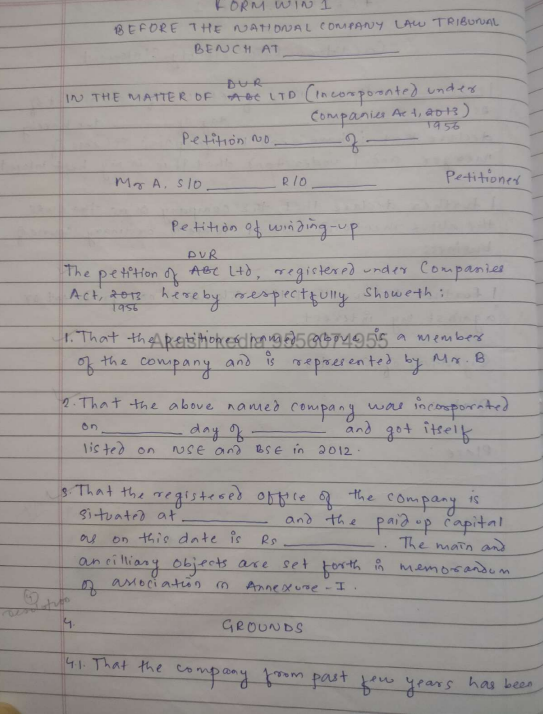 FORM WIN 1
BEFORE THE NATIONAL COMPANY LAW TRIBUNAL
BENCH AT ________
DVR
IN THE MATTER OF ABC LTD (incorporated under
Companies Act, 2013)
1956
Petition NO ________ of ________
Mr A. S/O ________ R/O ________ Petitioner
Petition of winding-up
DVR
The petition of ABC Ltd, registered under Companies
Act, 2013 hereby respectfully showeth:
1956
1. That the petitioner named above is a member
Akash kedia 9556074955
of the company and is represented by Mr. B
2. That the above named company was incorporated
on ________ day of ________ and got itself
listed on NSE and BSE in 2012.
3. That the registered office of the company is
situated at ________ and the paid up capital
as on this date is Rs ________. The main and
ancilliary objects are set forth in memorandum
of association in Annexure-I.
4. GROUNDS
4.1. That the company from past few years has been